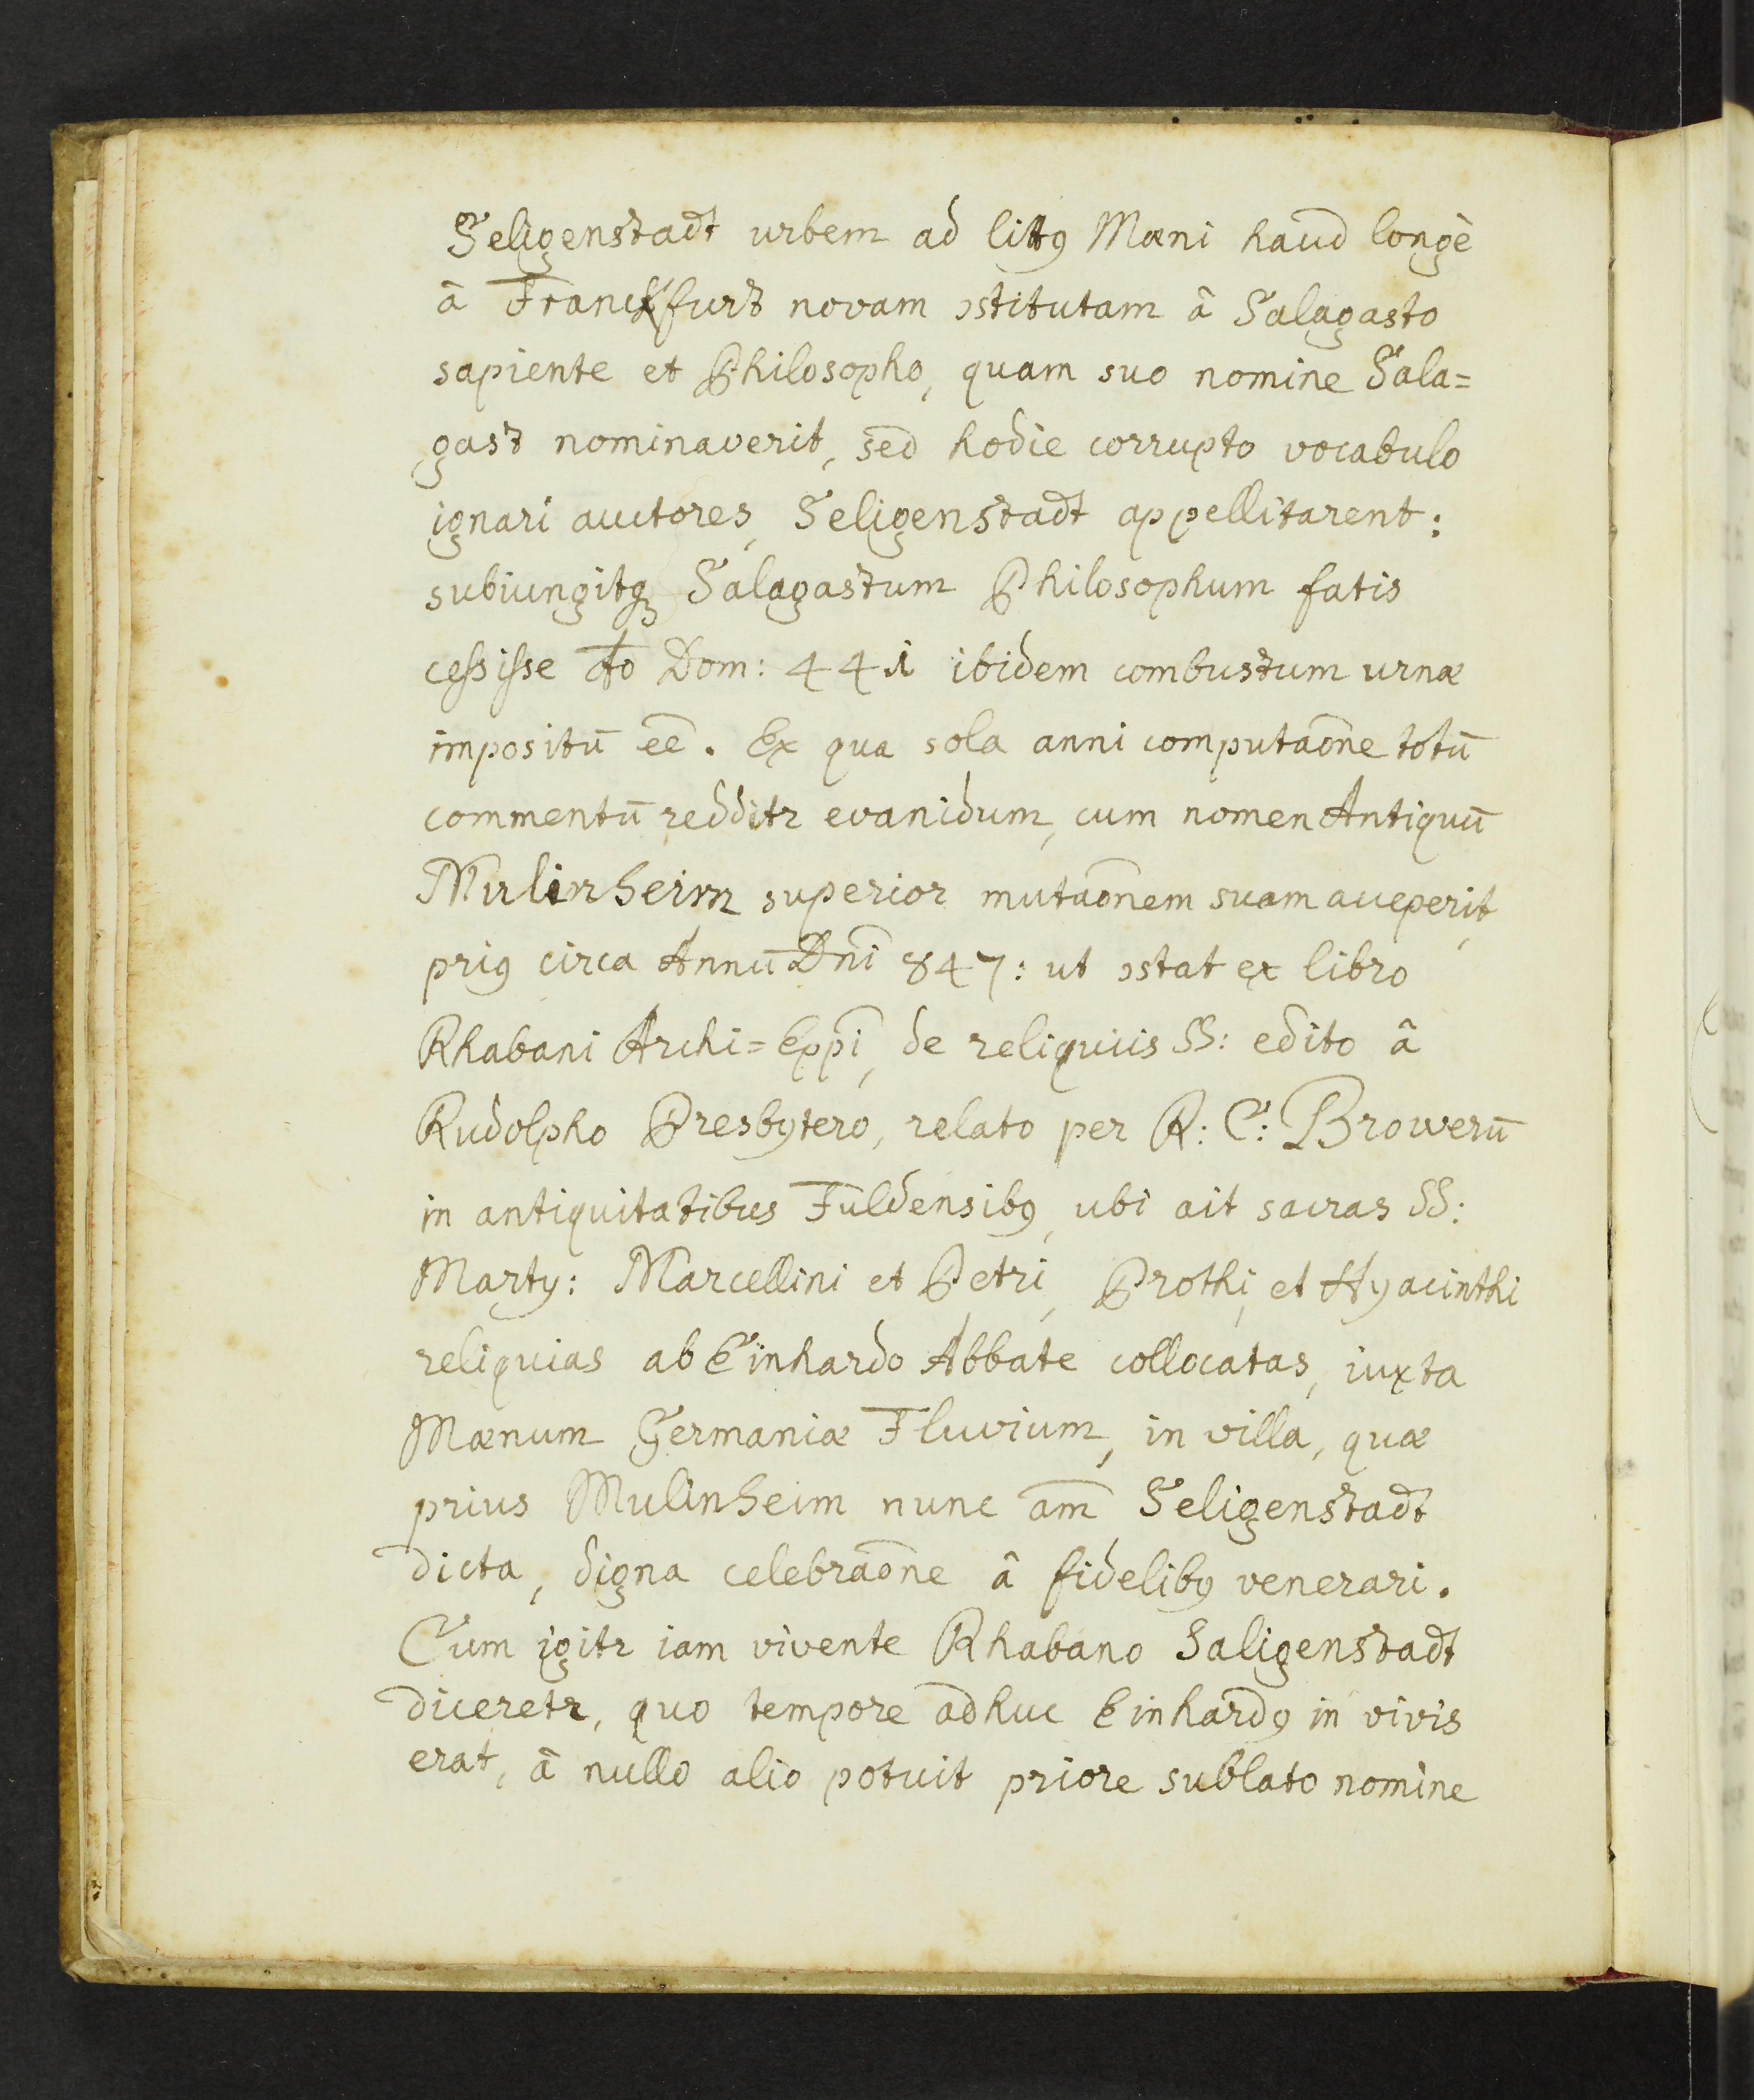 Seligenstadt urbem ad littꝯ Mæni haud longè
â Franckfurt novam ↄstitutam â Salagasto
sapiente et Philosopho, quam suo nomine Sala=
gast nominaverit, sed hodie corrupto vocabulo
ignari auctores, Seligenstadt appellitarent:
subiungitqꝫ Salagastum Philosophum fatis
cessisse Ao Dom: 441 ibidem combustum urnæ
impositū eē. Ex qua sola anni computaōne totū
commentū redditr evanidum, cum nomen Antiquū
Mulinheim superior mutaōnem suam acceperit,
priꝯ circa Annū Dn̄i 847: ut ↄstat ex libro
Rhabani Archi=Epp̄i, de reliquiis SS: edito â
Rudolpho Presbytero, relato per R: C: Browerū
in antiquitatibus Fuldensibꝯ, ubi ait sacras SS:
Marty: Marcellini et Petri, Prothi, et Hyacinthi
reliquias ab Einhardo Abbate collocatas, iuxta
Mænum Germaniæ Fluvium, in villa, quæ
prius Mulinheim nunc am̄ Seligenstadt
dicta, digna celebraōne â fidelibꝯ venerari.
Cum igitr iam vivente Rhabano Saligenstadt
diceretr, quo tempore adhuc Einhardꝯ in vivis
erat, â nullo alio potuit priore sublato nomine